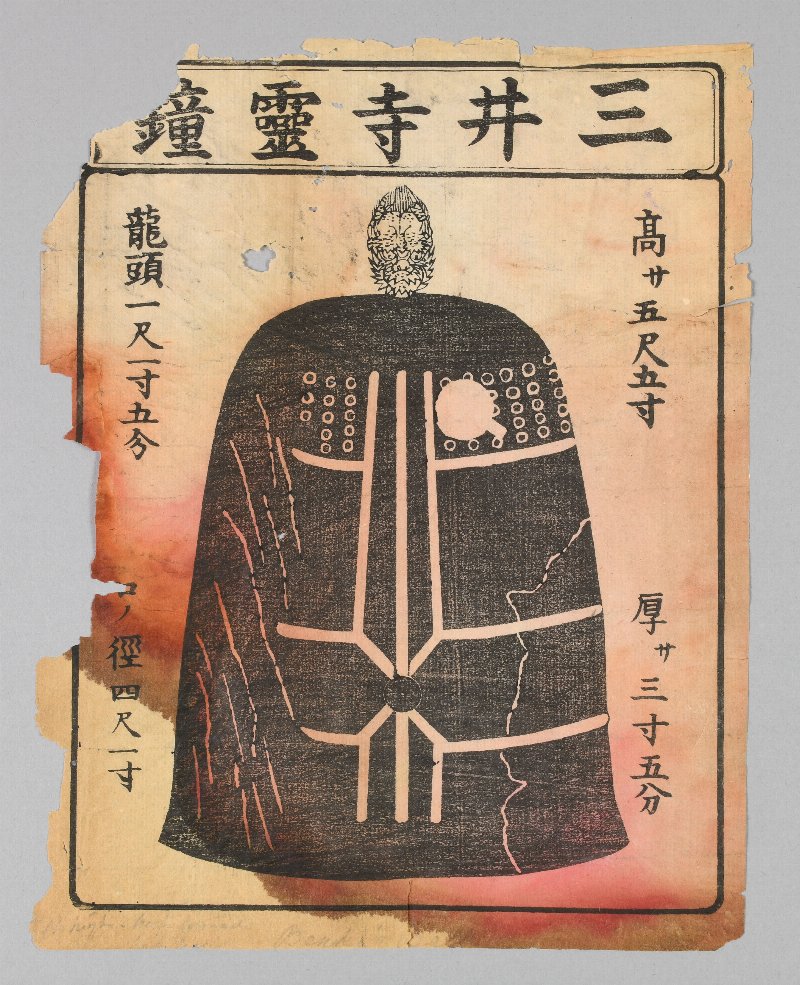 三井寺靈鐘
髙サ五尺五寸
厚サ三寸五分
龍頭一尺一寸五分
口ノ徑四尺一寸